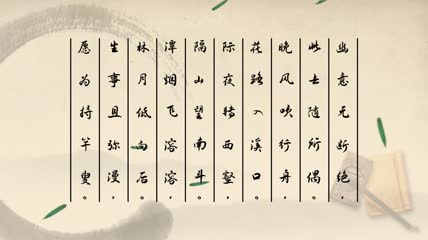 幽意无断绝，
此去随所偶。
晚风吹行舟，
花路入溪口。
际夜转西壑，
隔山望南斗。
潭烟飞溶溶，
林月低向后。
生事且弥漫，
愿为持竿叟。